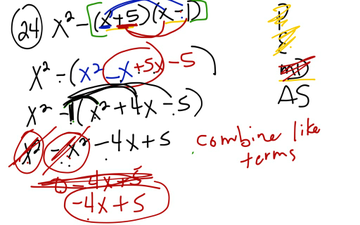 24) x² - (x+5)(x-1)
x² - (x² - x + 5x - 5)
x² - 1(x² + 4x - 5)
x² - x² - 4x + 5
0 - 4x + 5
-4x + 5
combine like
terms
P
E
MD
AS